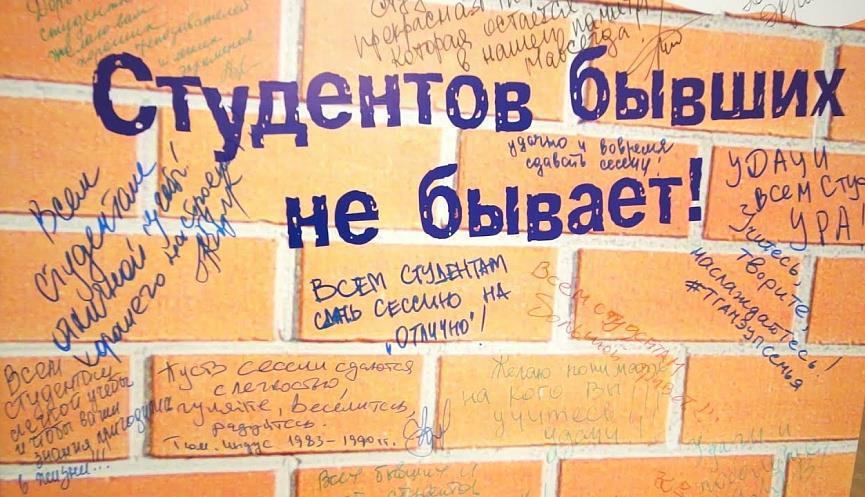 студенты
желаю вам
хороших
преподавателей
и легких
экзаменов
прекрасная
которая остается
в нашей памяти
навсегда!
Студентов бывших
не бывает!
удачно и вовремя
сдавать сессии!
УДАЧИ
ВСЕМ СТУД
УРА!
Учитесь,
творите,
наслаждайтесь!
#ТГАМЭУПСЕМЬЯ
Всем
студентам
отличной учебы!
хорошего настроен
ВСЕМ СТУДЕНТАМ
СДАТЬ СЕССИЮ НА
„ОТЛИЧНО"!
Всем студентам
большой привет!!!
Всем
студентам
легкой учебы
и чтобы ваши
знания пригодились
в жизни!!!
Пусть сессии сдаются
с легкостью,
гуляйте, веселитесь,
радуйтесь.
Тюм. индус 1983-1990 гг.
Желаю понимать
на кого Вы
учитесь!!!
Удачи!!
Всем бывшим и
студентов
Удачи и